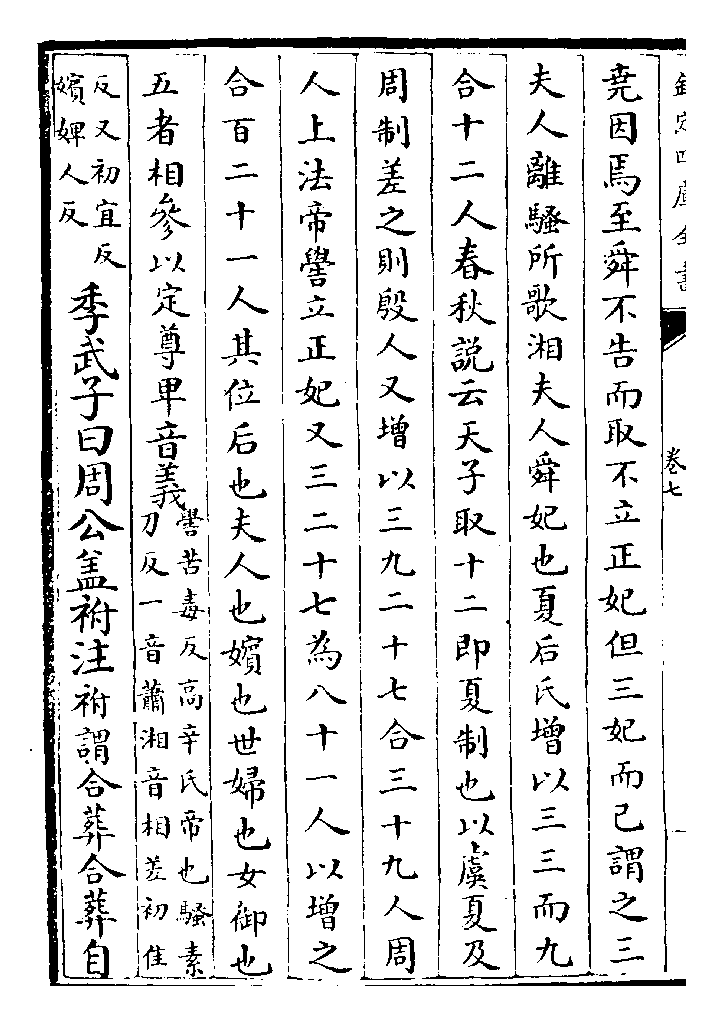 欽定四庫全書
卷七
堯因焉至舜不告而取不立正妃但三妃而已謂之三
夫人離騷所歌湘夫人舜妃也夏后氏增以三三而九
合十二人春秋說云天子取十二即夏制也以虞夏及
周制差之則殷人又增以三九二十七合三十九人周
人上法帝嚳立正妃又三二十七為八十一人以增之
合百二十一人其位后也夫人也嬪也世婦也女御也
五者相參以定尊卑音義嚳苦毒反高辛氏帝也騷素
刀反一音蕭湘音相差初佳
反又初宜反
嬪婢人反
季武子曰周公盖祔注祔謂合葬合葬自